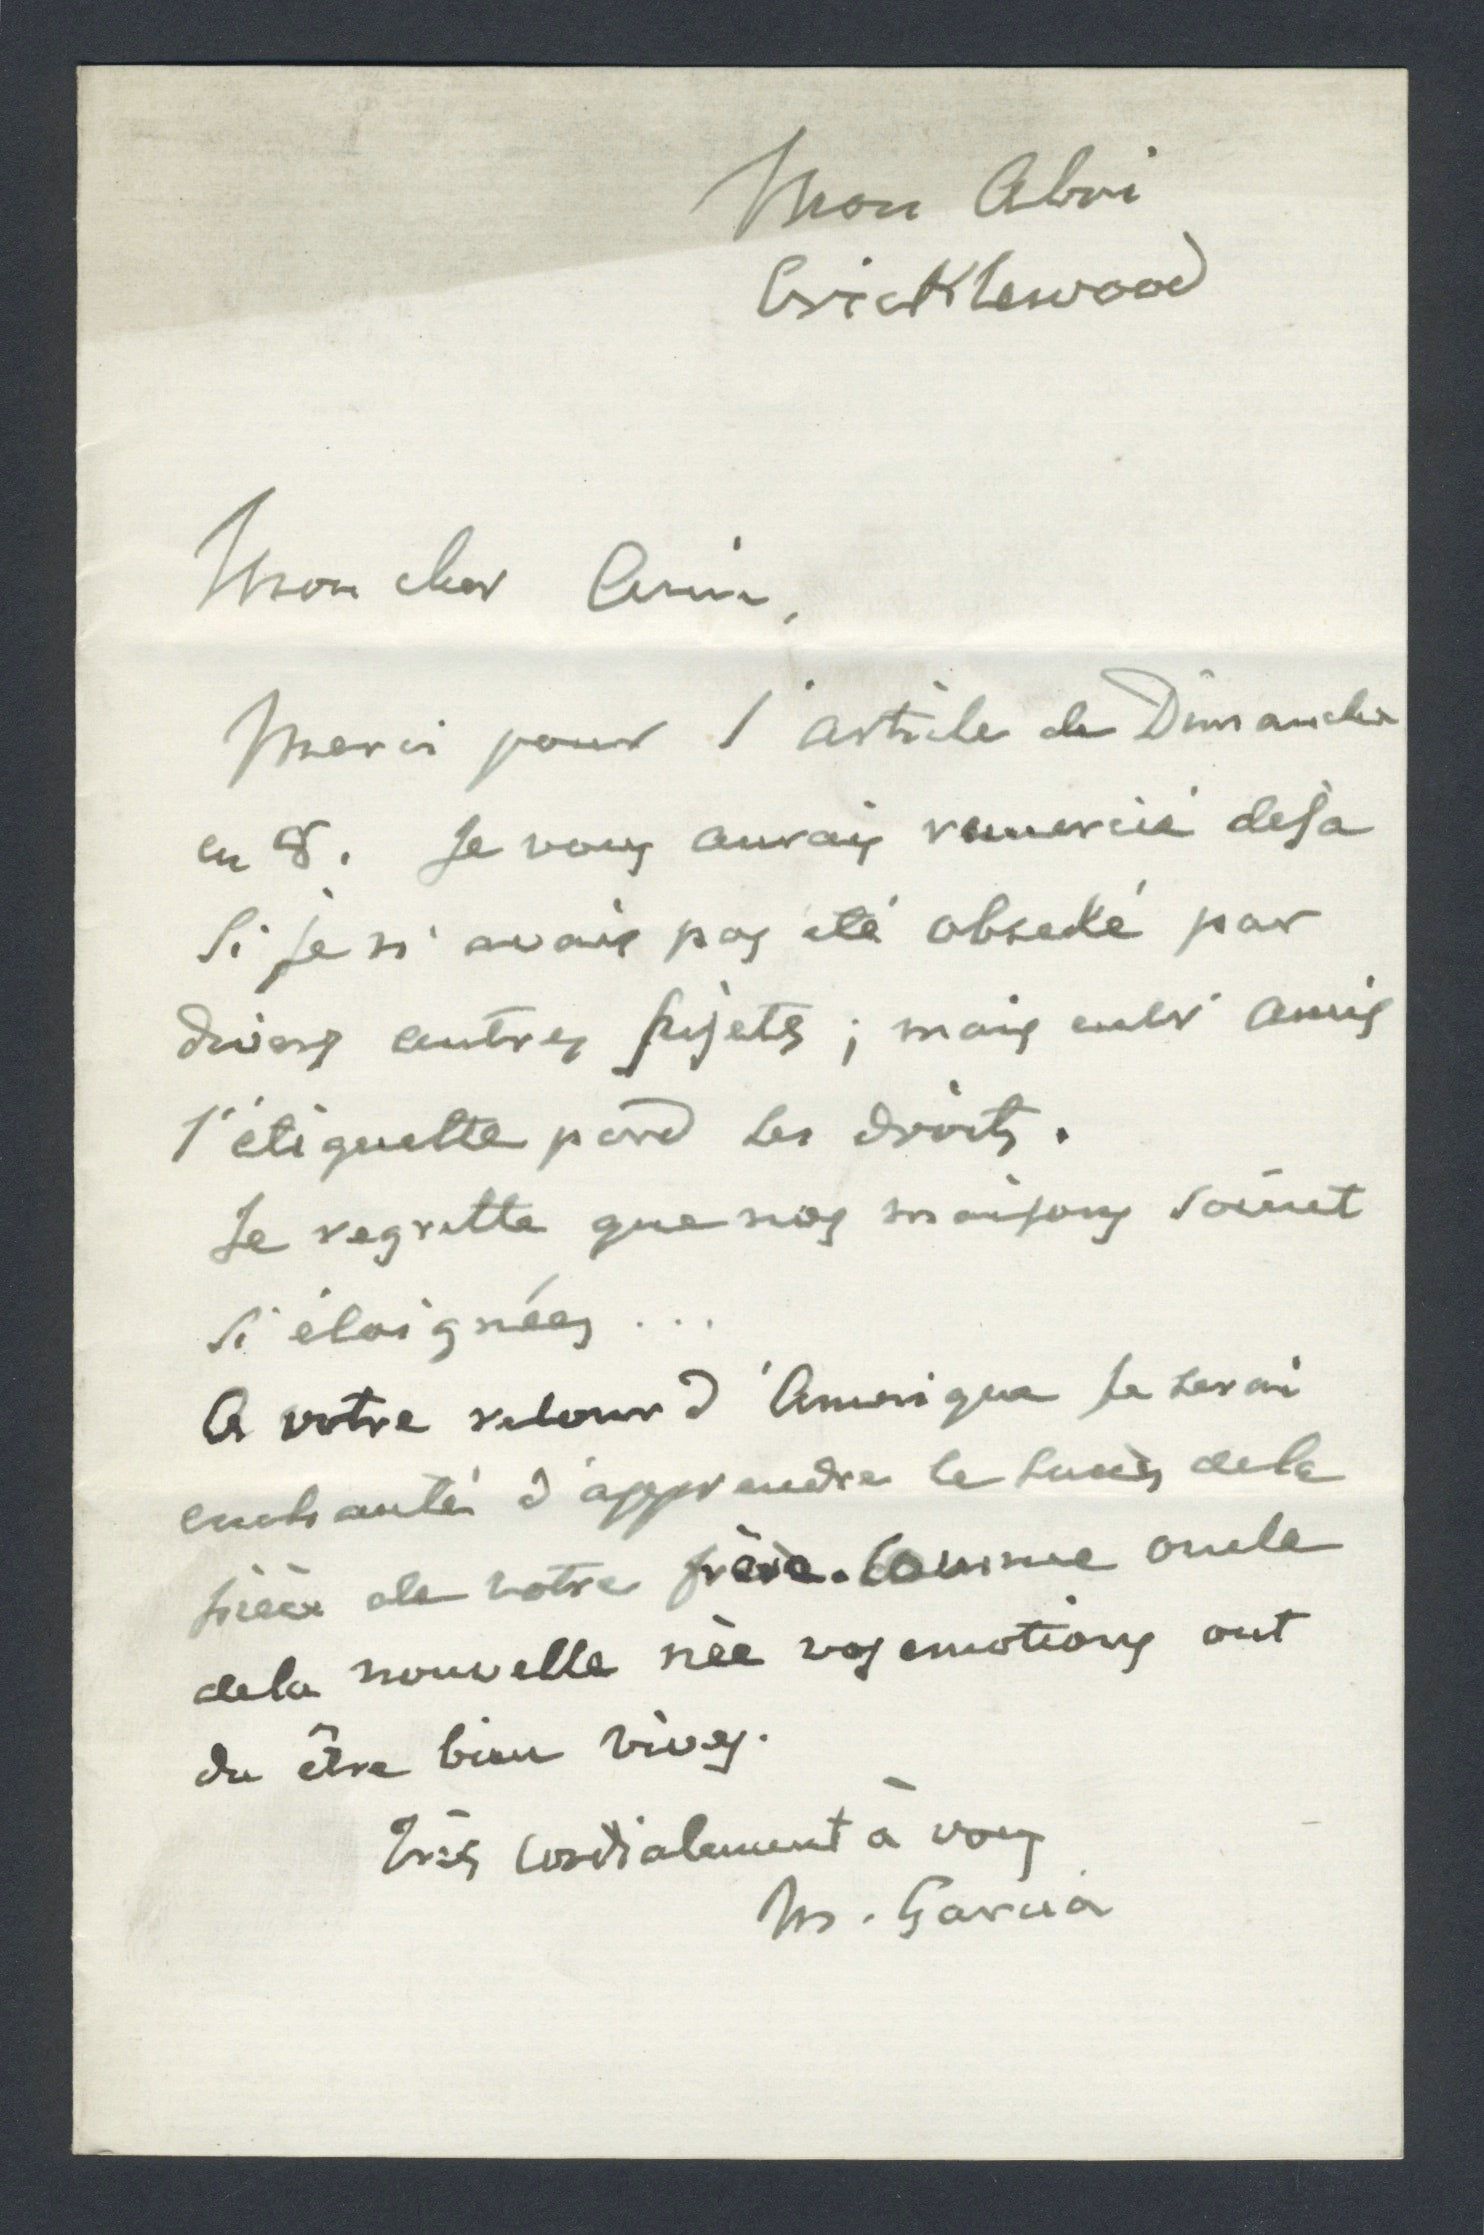 Mon Abri
Cricklewood
Mon cher
Merci pour l'article de Dimanche
en 8. Je vous aurais remercié deja
Si je n'avais pas été obsedé par
divers autres sujets; mais entr'amis
l'étiquette perd ses droits.
Je regrette que nos maisons soient
si éloignées...
A votre retour d'Amerique je serai
enchanté d'apprendre le succès de la
pièce de votre frère. Comme oncle
de la nouvelle née vos emotions ont
du être bien vives.
Très cordialement à vous
M. Garcia